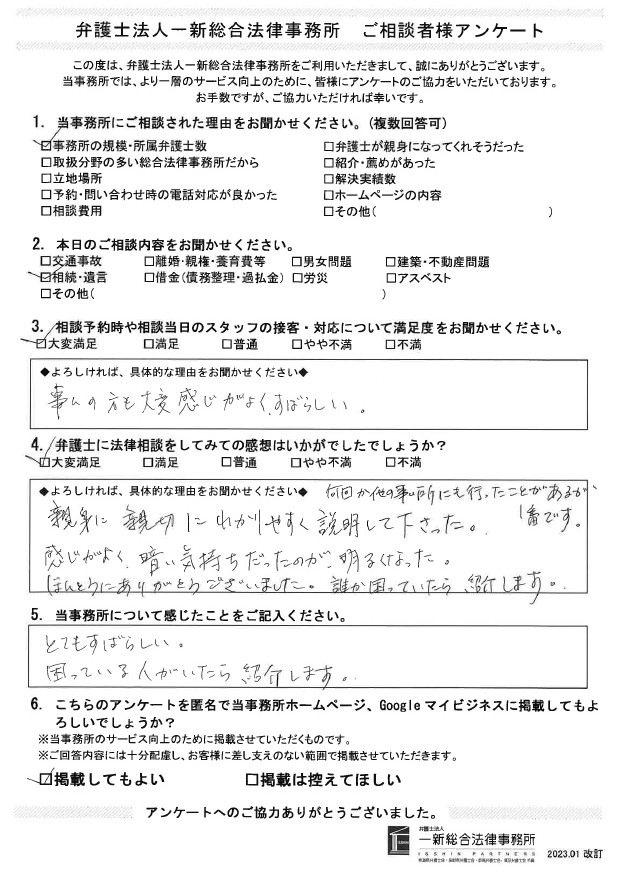 弁護士法人一新総合法律事務所 ご相談者様アンケート
この度は、弁護士法人一新総合法律事務所をご利用いただきまして、誠にありがとうございます。
当事務所では、より一層のサービス向上のために、皆様にアンケートのご協力をいただいております。
お手数ですが、ご協力いただければ幸いです。
1. 当事務所にご相談された理由をお聞かせください。(複数回答可)
☑事務所の規模・所属弁護士数 □弁護士が親身になってくれそうだった
□取扱分野の多い総合法律事務所だから □紹介・薦めがあった
□立地場所 □解決実績数
□予約・問い合わせ時の電話対応が良かった □ホームページの内容
□相談費用 □その他( )
2. 本日のご相談内容をお聞かせください。
□交通事故 □離婚・親権・養育費等 □男女問題 □建築・不動産問題
☑相続・遺言 □借金(債務整理・過払金) □労災 □アスベスト
□その他( )
3. 相談予約時や相談当日のスタッフの接客・対応について満足度をお聞かせください。
☑大変満足 □満足 □普通 □やや不満 □不満
◆よろしければ、具体的な理由をお聞かせください◆
事ムの方も大変感じがよく、すばらしい。
4. 弁護士に法律相談をしてみての感想はいかがでしたでしょうか?
☑大変満足 □満足 □普通 □やや不満 □不満
◆よろしければ、具体的な理由をお聞かせください◆ 何回か他の事ム所にも行ったことがあるが、
1番です。
親身に親切にわかりやすく説明して下さった。
感じがよく、暗い気持ちだったのが、明るくなった。
ほんとうにありがとうございました。誰か困っていたら、紹介します。
5. 当事務所について感じたことをご記入ください。
とてもすばらしい。
困っている人がいたら紹介します。
6. こちらのアンケートを匿名で当事務所ホームページ、Google マイビジネスに掲載してもよ
ろしいでしょうか?
※当事務所のサービス向上のために掲載させていただくものです。
※ご回答内容には十分配慮し、お客様に差し支えのない範囲で掲載させていただきます。
☑掲載してもよい □掲載は控えてほしい
アンケートへのご協力ありがとうございました。
弁護士法人
一新総合法律事務所
ISSHIN PARTNERS
2023.01 改訂